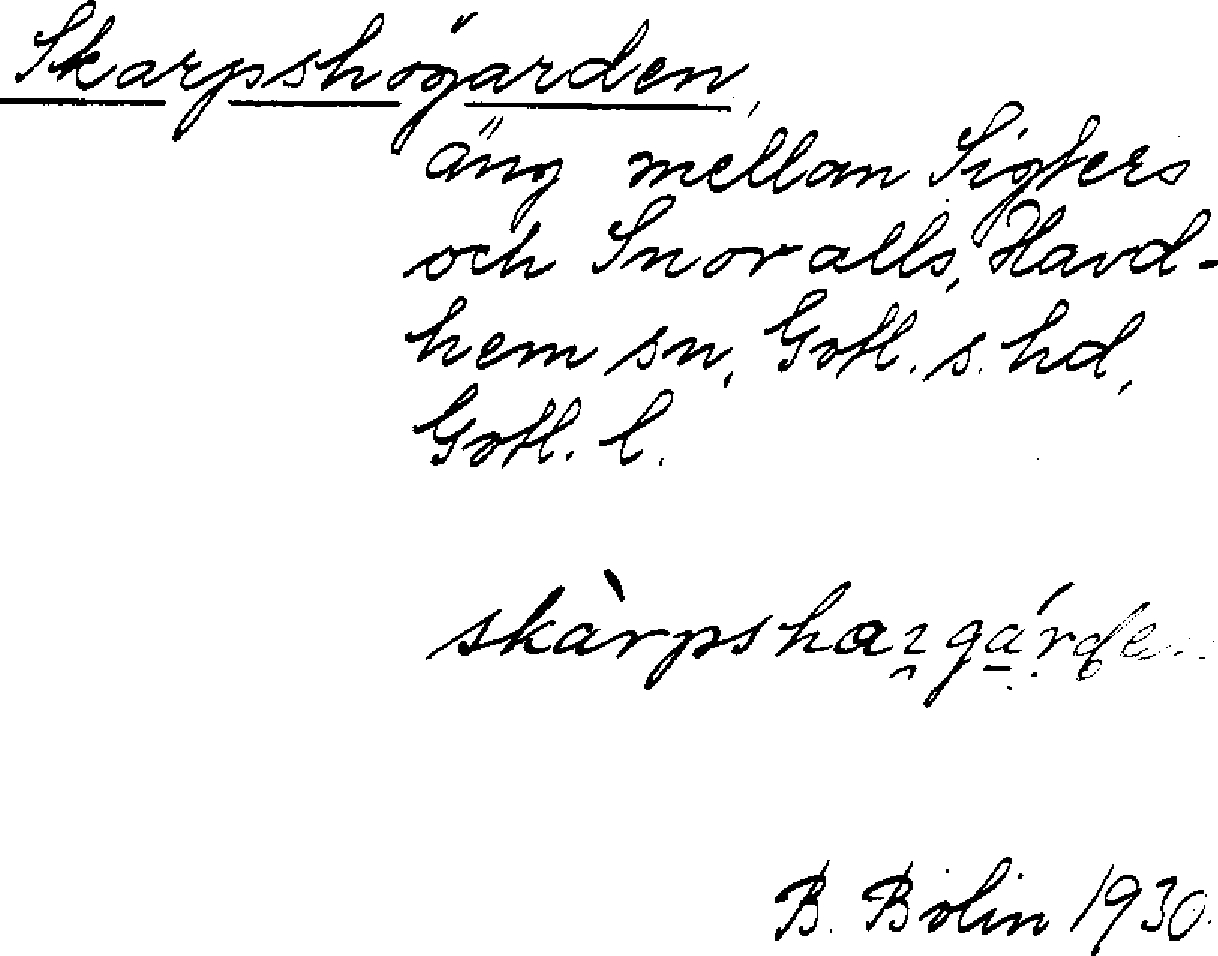 Skarpshögarden,
äng mellan Sigters
och Snovalls, Havd-
hem sn, Gotl. s. hd,
Gotl. l.
B. Bolin 1930.